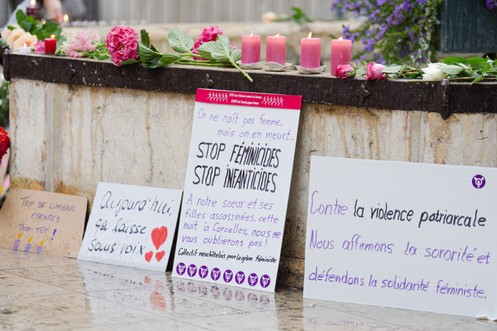 TROP DE LUMIÈRES
ÉTEINTES
TROP TÔT !
Aujourd'hui,
elle laisse
sans voix
On ne naît pas femme,
mais on en meurt...
STOP FÉMINICIDES
STOP INFANTICIDES
A notre soeur et ses
filles assassinées, cette
nuit à Corcelles, nous ne
vous oublierons pas !
Collectif neuchâtelois pour la grève féministe
Contre la violence patriarcale
Nous affirmons la sororité et
défendons la solidarité féministe.